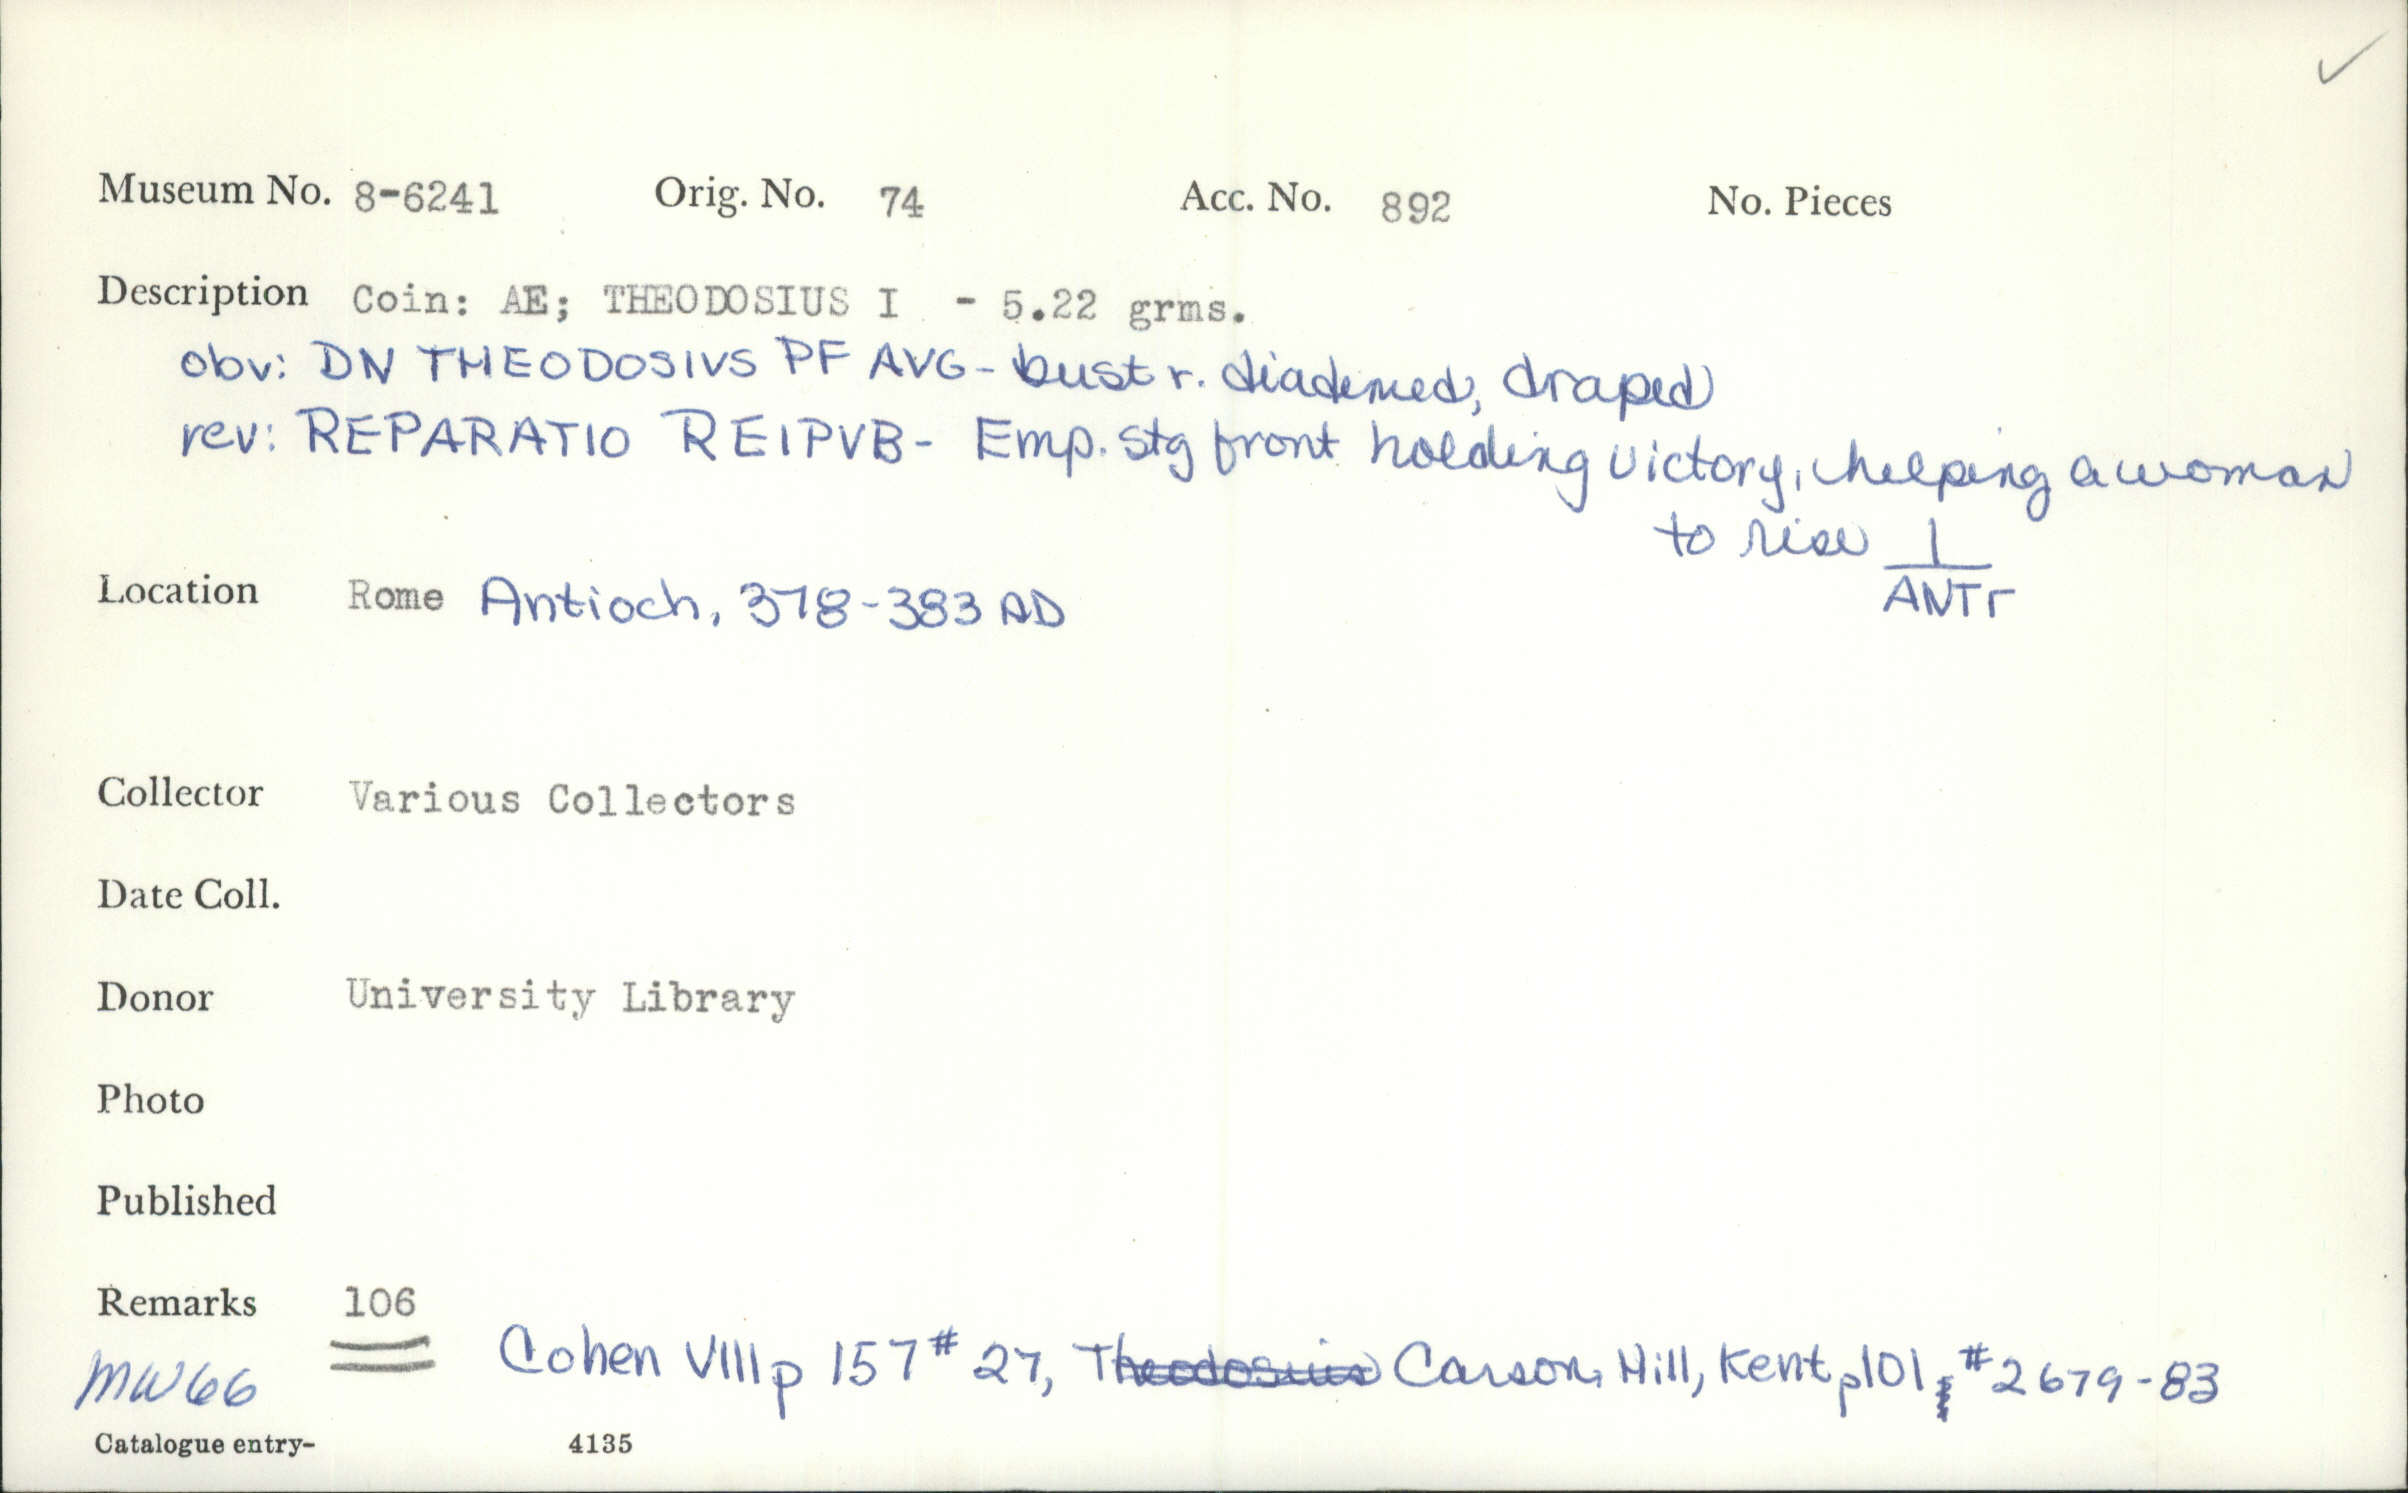 Museum No. 8-6241 Orig. No. 74 Acc. No. 892 No. Pieces
Description Coin: AE; THEODOSIUS I - 5.22 grms.
obv: DN THEODOSIVS PF AVG - bust r. diademed, draped
rev: REPARATIO REIPVB - Emp. stg front holding victory, helping a woman
to rise 1
ANTΓ
Location Rome Antioch, 378-383 AD
Collector Various Collectors
Date Coll.
Donor University Library
Photo
Published
Remarks 106
MW66 Cohen VIII p 157 # 27, Theodosius Carson, Hill, Kent p101, # 2679-83
Catalogue entry- 4135